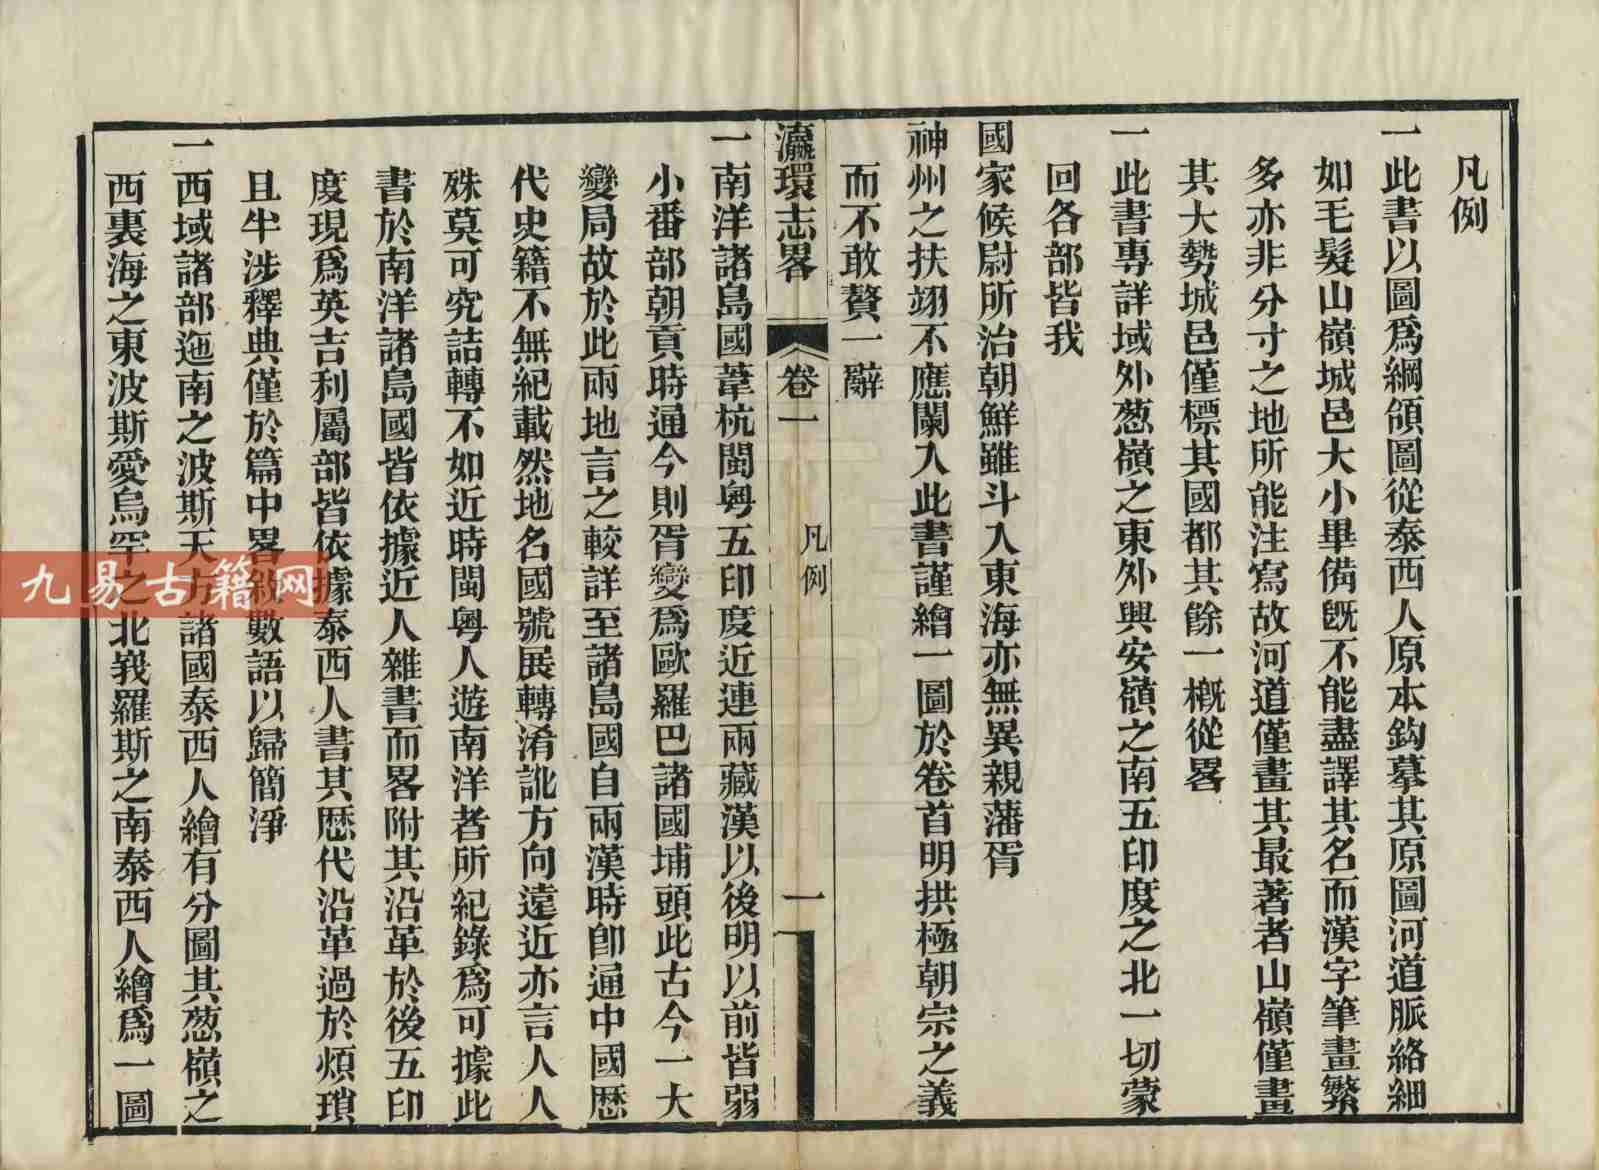 凡例
一此書以圖爲綱領圖從泰西人原本鈎摹其原圖河道脈絡細
如毛髮山嶺城邑大小畢備旣不能盡譯其名而漢字筆畫繁
多亦非分寸之地所能注寫故河道僅畫其最著者山嶺僅畫
其大勢城邑僅標其國都其餘一槪從畧
一此書專詳域外葱嶺之東外興安嶺之南五印度之北一切蒙
回各部皆我
國家候尉所治朝鮮雖斗入東海亦無異親藩胥
神州之扶翊不應闌入此書謹繪一圖於卷首明拱極朝宗之義
而不敢贅一辭
瀛環志畧 卷一 凡例 一
一南洋諸島國葦杭閩粵五印度近連兩藏漢以後明以前皆弱
小番部朝貢時通今則胥變爲歐羅巴諸國埔頭此古今一大
變局故於此兩地言之較詳至諸島國自兩漢時卽通中國歷
代史籍不無紀載然地名國號展轉淆訛方向遠近亦言人人
殊莫可究詰轉不如近時閩粵人遊南洋者所紀錄爲可據此
書於南洋諸島國皆依據近人雜書而畧附其沿革於後五印
度現爲英吉利屬部皆依據泰西人書其歷代沿革過於煩瑣
且半涉釋典僅於篇中畧敘數語以歸簡淨
一西域諸部迤南之波斯天方諸國泰西人繪有分圖其葱嶺之
西裏海之東波斯愛烏罕之北峩羅斯之南泰西人繪爲一圖
九易古籍网